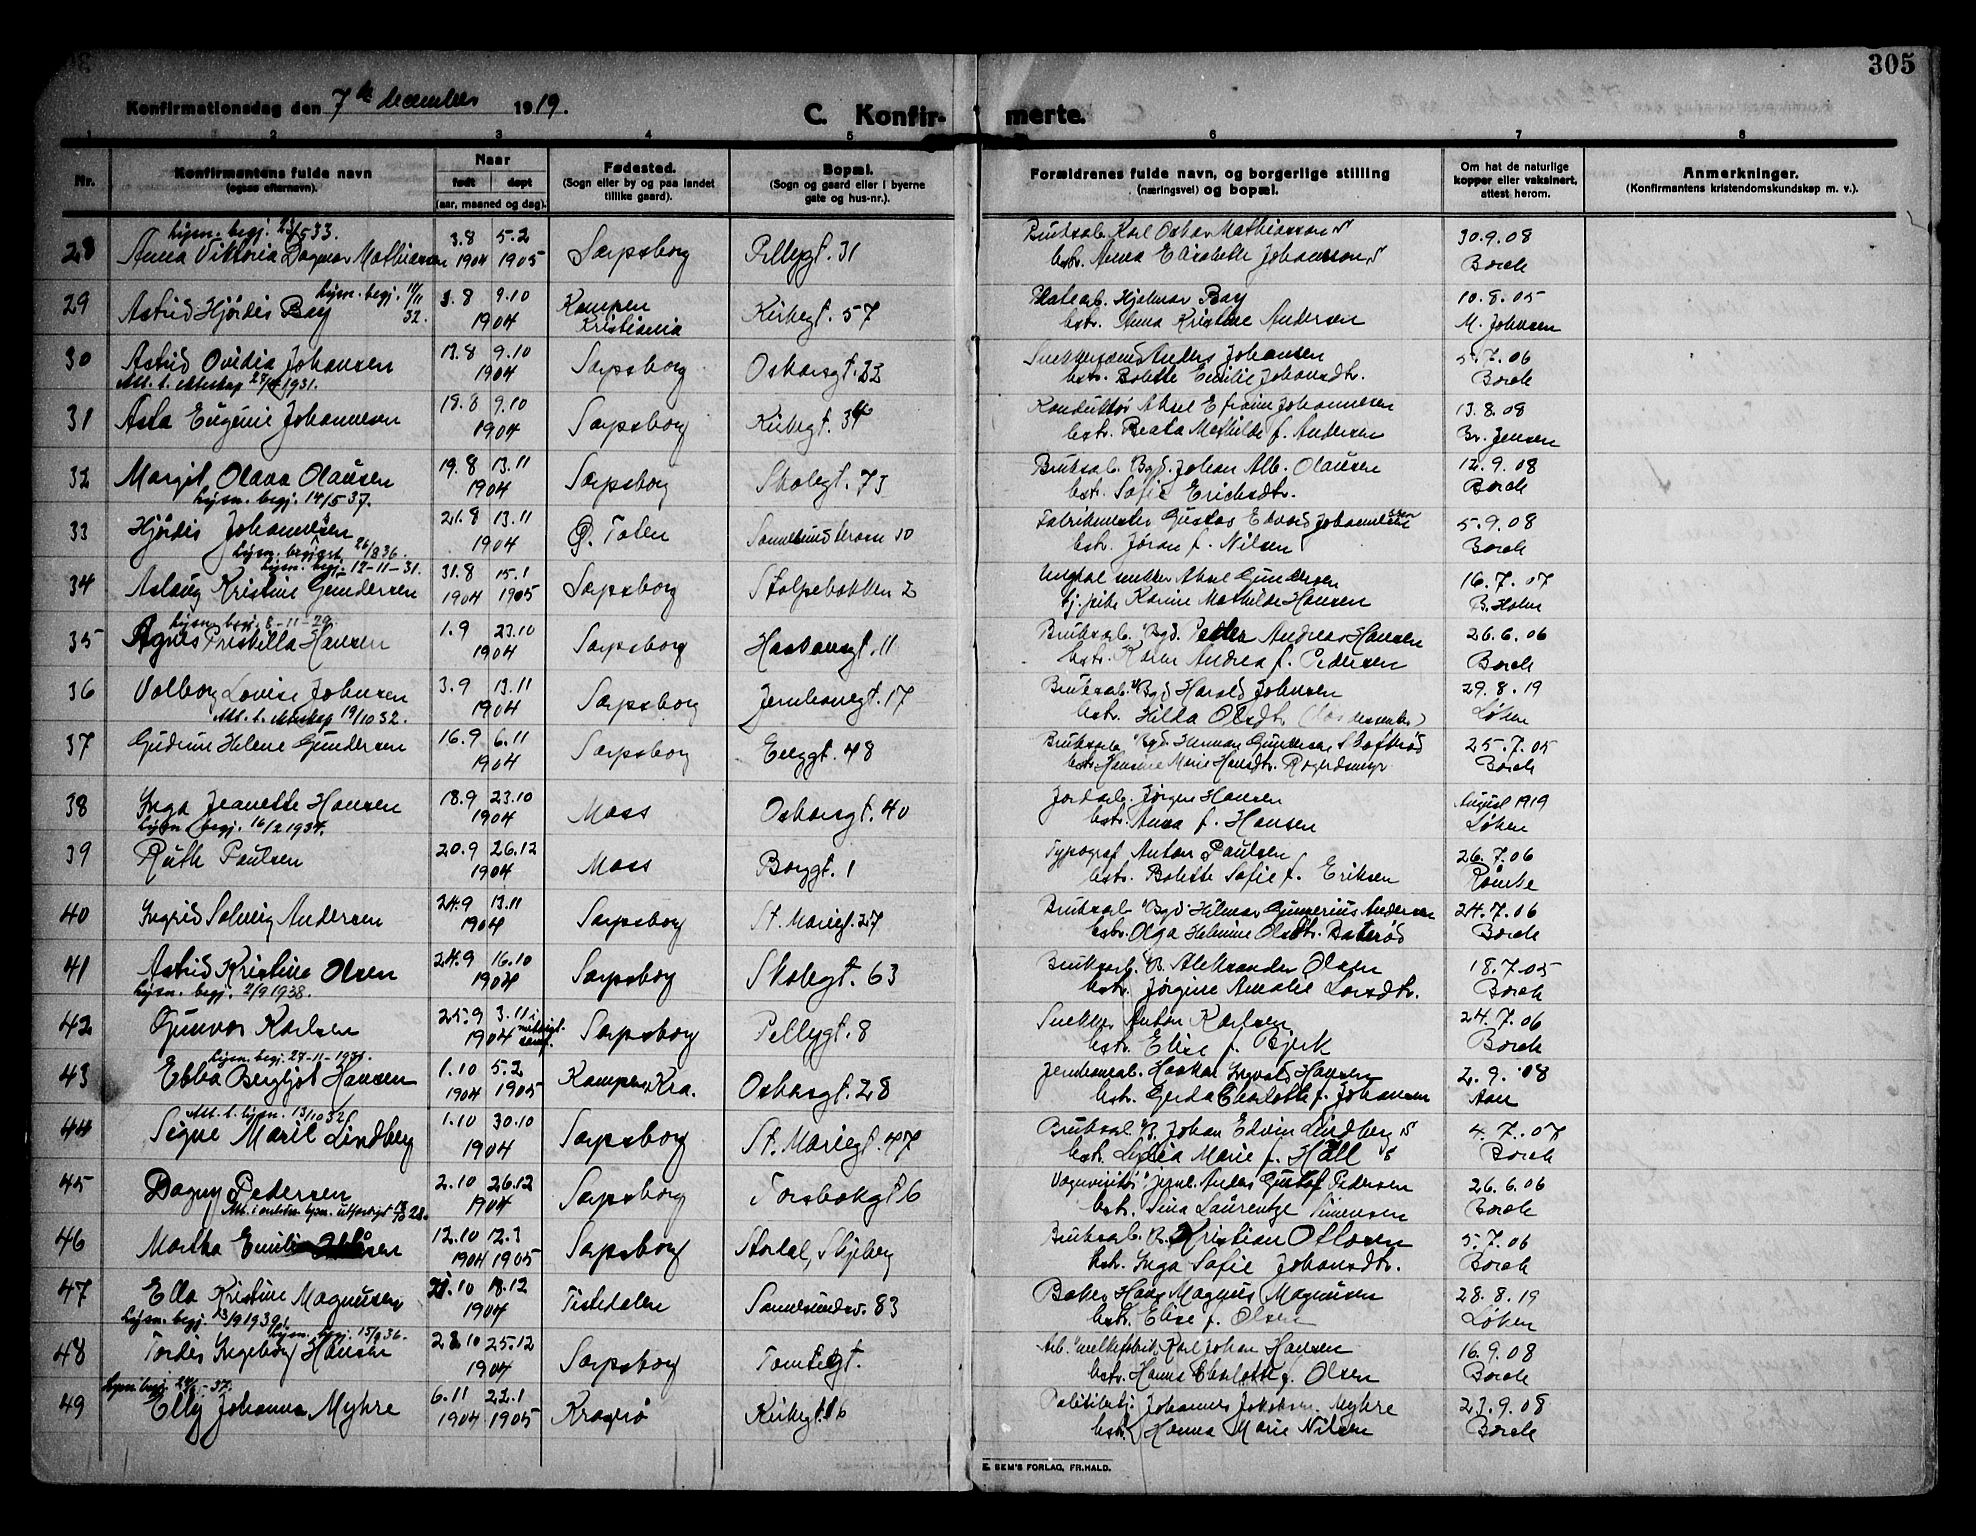 305
Konfirmationsdag den 7de december 1919.
C. Konfir- merte.
1 2 3 4 5 6 7 8
Nr. Konfirmantens fulde navn (ogsaa efternavn). Naar født døpt (aar, maaned og dag). Fødested. (Sogn eller by og paa landet tillike gaard). Bopæl. (Sogn og gaard eller i byerne gate og hus-nr.). Forældrenes fulde navn, og borgerlige stilling (næringsvei) og bopæl. Om hat de naturlige kopper eller vaksinert, attest herom. Anmerkninger. (Konfirmantens kristendomskundskap m. v.).
lysn. begj. 23/5 33. 3.8 5.2 Bruksarb. Karl Oskar Mathiasson 30.9.08
28 Anna Viktoria Dagmar Mathiassen 1904 1905 Sarpsborg Pellygt. 31 hstr. Anna Elisabeth Johansson Borch
lysn. begj. 11/11 32. 3.8 9.10 Kampen Platearb. Hjalmar Bay 10.8.05
29 Astrid Hjørdis Bay 1904 Kristiania Kirkegt. 57 hstr. Anna Kristine Andersen M. Johnsen
30 Astrid Ovidia Johansen 13.8 9.10 Sarpsborg Oskarsgt. 22 Anders Johansen 5.7.06
1931. 1904 hstr. Bolette Emilie Johansdtr. Borch
31 Asta Eugénie Johannesen 19.8 9.10 Sarpsborg Kirkegt. 34 Konduktør Aksel Efraim Johannesen 13.8.08
1904 hstr. Beata Mathilde f. Andersen Br. Jensen
32 Margit Olava Olausen 19.8 13.11 Sarpsborg Skolegt. 73 Bruksarb. Bgd. Johan Alb. Olausen 12.9.08
lysn. begj. 14/5 37. 1904 hstr. Sofie Erichsdtr. Borch
33 Hjördis Johannesen 21.8 13.11 Fabrikmester Gustav Edvard 5.9.08
lysn. begjært 26/8 36. 1904 hstr. Jöran f. Nilsen Borch
lysn. begj. 12-11-31. 31.8 15.1 snekker Aksel Gundersen 16.7.07
34 Aslaug Kristine Gundersen 1904 1905 Sarpsborg Stolpebakken 2 tj. pike Karine Mathilde Hansen B. Holm
lysn. begj. 8-11-29. 1.9 23.10 Bruksarb. Bgd. Peder Andreas Hansen 26.6.06
35 Agnes Priskilla Hansen 1904 Sarpsborg Haakonsgt. 11 hstr. Karen Andrea f. Pedersen Borch
36 Valborg Lovise Johnsen 3.9 13.11 Sarpsborg Jernbanegt. 17 Bruksarb. Bgd Harald Johnsen 29.8.19
19/10 32. 1904 hstr. Hilda Olsdtr. Løken
37 Gudrun Helene Gundersen 16.9 6.11 Sarpsborg Enggt. 48 Bruksarb. Bgd. Herman Gundersen 25.7.05
1904 hstr. Hansine Marie Hansdtr. Borch
38 Inga Jeanette Hansen 18.9 23.10 Moss Oskarsgt. 40 Jordarb. Jørgen Hansen August 1919
lysn. begj. 16/2 1934. 1904 hstr. Anna f. Hansen Løken
39 Ruth Paulsen 20.9 26.12 Moss Borggt. 1 Typograf Anton Paulsen 26.7.06
1904 hstr. Bolette Sofie f. Eriksen
40 Ingrid Solveig Andersen 24.9 13.11 Sarpsborg St. Mariegt. 27 Bruksarb. Bgd Hilmar Gunnerius Andersen 24.7.06
1904 hstr. Olga Helmine Olsdtr. Borch
41 Astrid Kristine Olsen 24.9 16.10 Sarpsborg Skolegt. 63 Bruksarb. B. Aleksander Olsen 18.7.05
lysn. begj. 2/9 1938. 1904 hstr. Jørgine Amalie Larsdtr. Borch
42 Gunvor Karlsen 25.9 3.11 i Sarpsborg Pellygt. 8 Snekker Anton Karlsen 24.7.06
1904 hstr. Elise f. Bjerk Borch
lysn. begj. 27-11- 1.10 5.2 Jernbanearb. Haakon Ingvald Hansen 2.9.08
43 Ebba Bergljot Hansen 1904 1905 Kampen Kra. Oskarsgt. 28 hstr. Gerda Charlotte f. Johansen
Att. t. lysn. 13/10 32 1.10 30.10 Bruksarb. B. Johan Edvin Lindberg 4.7.07
44 Signe Marie Lindberg 1904 Sarpsborg St. Mariegt. 47 hstr. Lydia Marie f. Hall Borch
45 Dagny Pedersen 2.10 26.12 Sarpsborg Torsbekgt 6 Gustaf Pedersen 26.6.06
lysn. utferdigt 28. 1904 hstr. Tina Laurentze Simensen Borch
46 Martha Emilie 12.10 12.3 Sarpsborg Stordal, Skjeberg Bruksarb. B. Kristian Ottosen 5.7.06
1904 1905 hstr. Inga Sofie Johansdtr. Borch
47 Ella Kristine Magnusen 21.10 18.12 Tistedalen Sannesundsv. 83 Baker Hans Magnus Magnusen 28.8.19
lysn. begj. 1939. 1904 hstr. Elise f. Olsen Løken
lysn. begj. 15/9 36. 23.10 25.12 Arb. Karl Johan Hansen 16.9.08
48 Tordis Ingeborg Hansen 1904 Sarpsborg Tomtegt. hstr. Hanna Charlotte f. Olsen Borch
lysn. begj. 37. 6.11 22.1 Politibetj. Johannes Jakobsen Myhre 23.9.08
49 Elly Johanna Myhre 1904 1905 Kragerø Kirkegt. 16 hstr. Hanna Marie Nilsen Borch
E. SEM'S FORLAG, FR.HALD.